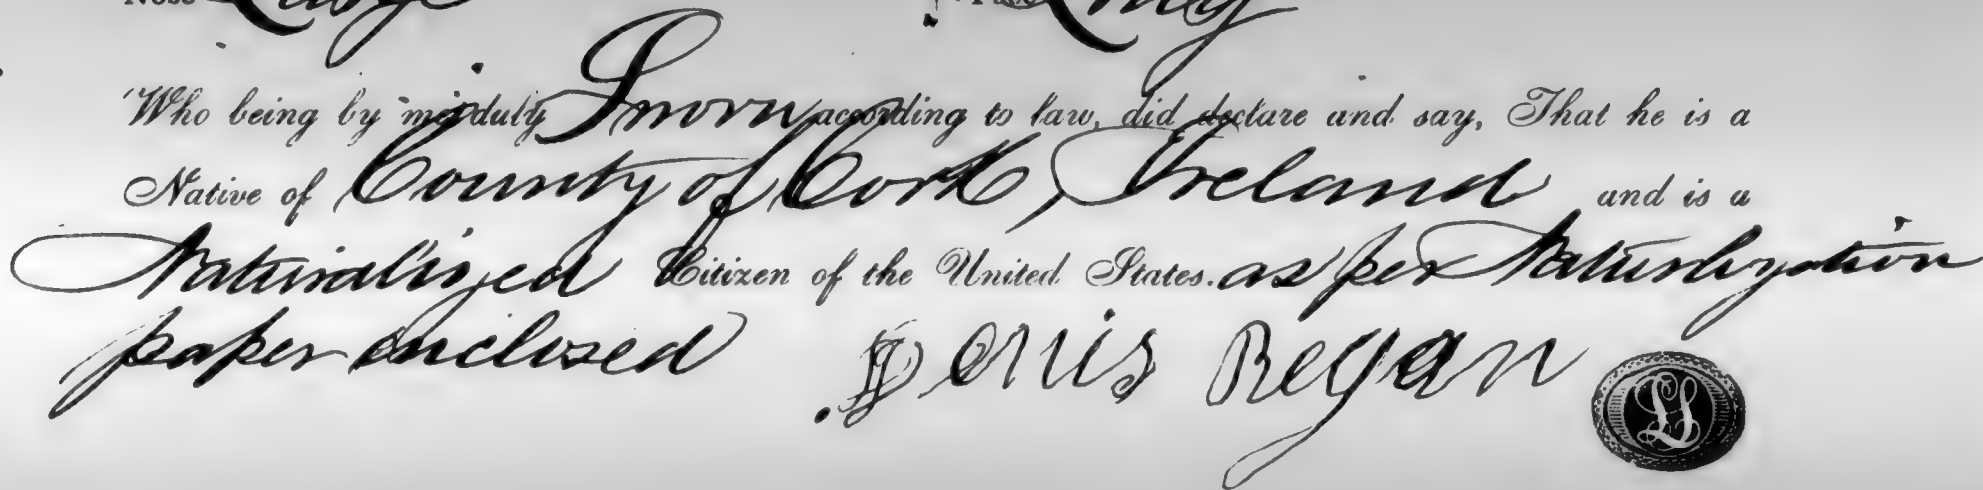 Nose Large Face Long
Who being by me duly Sworn according to law, did declare and say, That he is a
Native of County of Cork, Ireland and is a
Naturalized Citizen of the United States. as per Naturalization
paper enclosed Denis Regan